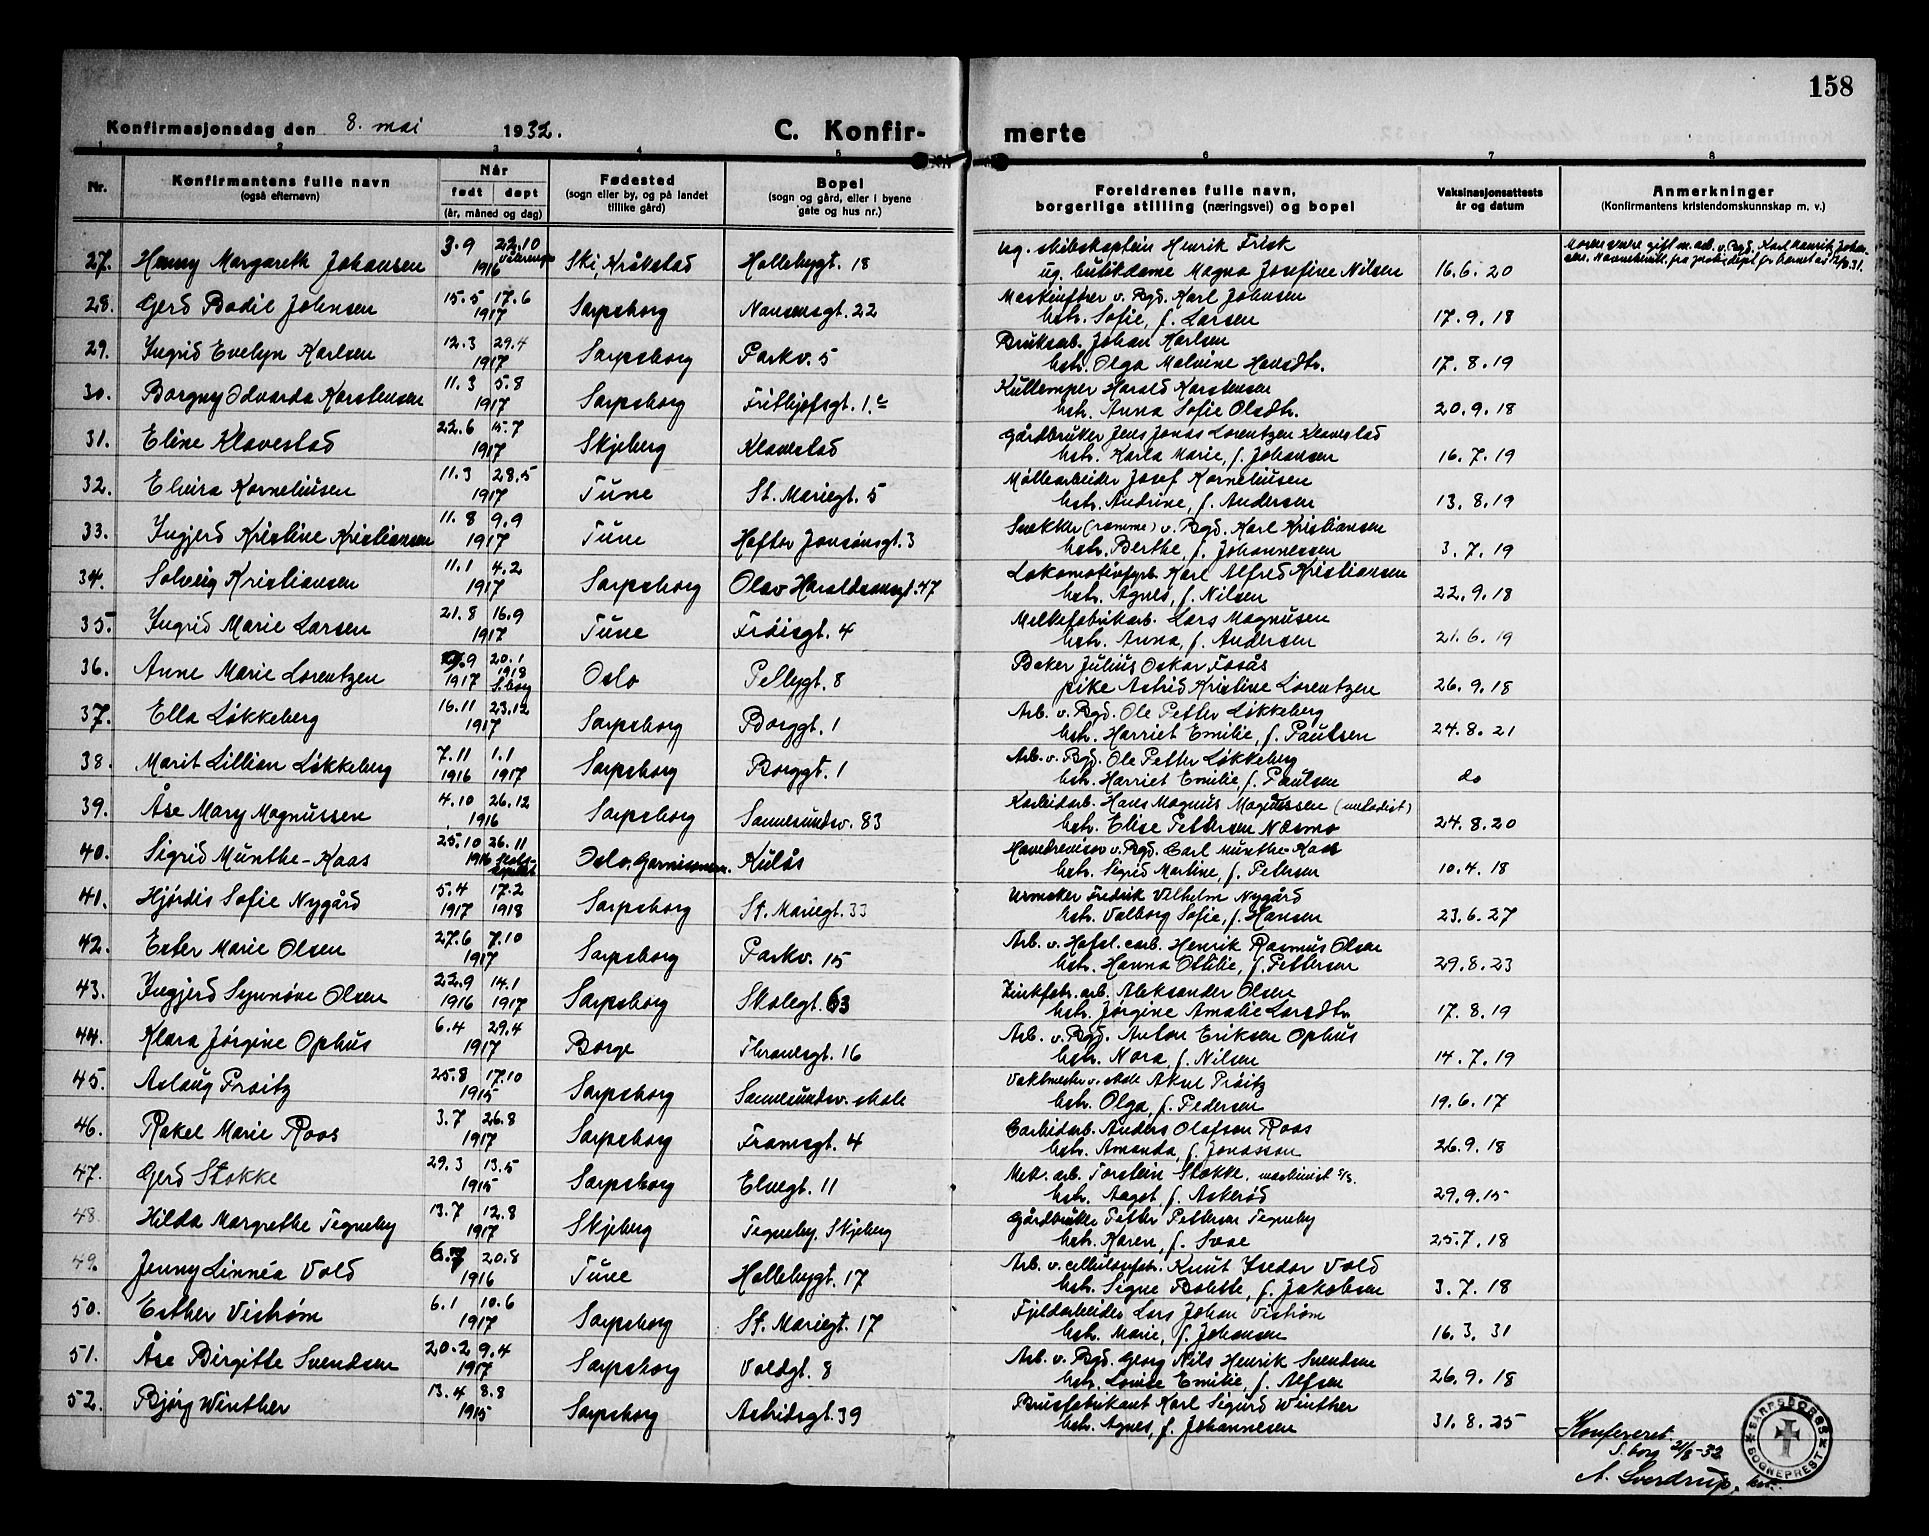 158
Konfirmasjonsdag den 8. mai 1932.
C. Konfir- merte
1 2 3 4 5 6 7 8
Nr.
Konfirmantens fulle navn
(også efternavn)
Når
født døpt
(år, måned og dag)
Fødested
(sogn eller by, og på landet
tillike gård)
Bopel
(sogn og gård, eller i byene
gate og hus nr.)
Foreldrenes fulle navn,
borgerlige stilling (næringsvei) og bopel
Vaksinasjonsattests
år og datum
Anmerkninger
(Konfirmantens kristendomskunnskap m. v.)
27. Henny Margareth Johansen 3.9 22.10 1916 Ski, Kråkstad Hollebygt. 18
ug. skibskaptein Henrik Frisk
ug. butikdame Magna Josefine Nilsen 16.6.20
28. Gerd Bodil Johnsen 15.5 17.6 1917 Sarpsborg Nansensgt. 22
Maskinfører v. Bgd. Karl Johnsen
hstr. Sofie, f. Larsen 17.9.18
29. Ingrid Evelyn Karlsen 12.3 29.4 1917 Sarpsborg Parkv. 5
Bruksarb. Johan Karlsen
hstr. Olga Malvine Hansdtr. 17.8.19
30. Borgny Edvarda Karstensen 11.3 5.8 1917 Sarpsborg Fritjofsgt. 1.
Kullemper Harald Karstensen
hstr. Anna Sofie Olsdtr. 20.9.18
31. Eline Klavestad 22.6 15.7 1917 Skjeberg Klavestad
Gårdbruker Jens Jonas Lorentzen Klavestad
hstr. Karla Marie, f. Johansen 16.7.19
32. Elvira Korneliusen 11.3 28.5 1917 Tune St. Mariegt. 5
Møllearbeider Josef Korneliusen
hstr. Andrine, f. Andersen 13.8.19
33. Ingjerd Kristine Kristiansen 11.8 9.9 1917 Tune Haftor Jonsönsgt. 3
Snekker (ramme) v. Bgd. Karl Kristiansen
hstr. Berthe, f. Johannessen 3.7.19
34. Solveig Kristiansen 11.1 4.2 1917 Sarpsborg Olav Haraldsønsgt. 47
Lokomotivfyrb. Karl Alfred Kristiansen
hstr. Agnes, f. Nilsen 22.9.18
35. Ingrid Marie Larsen 21.8 16.9 1917 Tune Frøisgt. 4
Melkefabrikarb. Lars Magnusen
hstr. Anna, f. Andersen 21.6.19
36. Anne Marie Lorentzen 20.1 1918 S.borg 1917 Oslo Pellygt. 8
Baker Julius Oskar Fosås
pike Astrid Kristine Lorentzen 26.9.18
37. Ella Løkkeberg 16.11 23.12 1917 Sarpsborg Borggt. 1
Arb. v. Bgd. Ole Petter Løkkeberg
hstr. Harriet Emilie, f. Paulsen 24.8.21
38. Marit Lillian Løkkeberg 7.11 1916 1.1 1917 Sarpsborg Borggt. 1
Arb. v. Bgd. Ole Petter Løkkeberg
hstr. Harriet Emilie f. Paulsen do
39. Åse Mary Magnussen 4.10 26.12 1916 Sarpsborg Sannesundsv. 83
Karbidarb. Hans Magnus Magnussen (metodist)
hstr. Elise Pettersen Næsmo 24.8.20
40. Sigrid Munthe-Kaas 25.10 26.11 1916 Oslo, Garnisonen. Kulås
Hovedrevisor v. Bgd. Carl Munthe-Kaas
hstr. Sigrid Martine, f. Petersen 10.4.18
41. Hjørdis Sofie Nygård 5.4 1917 17.2 1918 Sarpsborg St. Mariegt. 33
Urmaker Fredrik Vilhelm Nygård
hstr. Valborg Sofie, f. Hansen 23.6.27
42. Ester Marie Olsen 27.6 7.10 1917 Sarpsborg Parkv. 15
Arb. v. Hafsl. carb. Henrik Rasmus Olsen
hstr. Hanna Ottilie, f. Pettersen 29.8.23
43. Ingjerd Synnøve Olsen 22.9 1916 14.1 1917 Sarpsborg Skolegt. 63
Zinkfabr. arb. Aleksander Olsen
hstr. Jørgine Amalie Larsdtr. 17.8.19
44. Klara Jørgine Ophus 6.4 29.4 1917 Borge Thranesgt. 16
Arb. v. Bgd. Anton Eriksen Ophus
hstr. Nora, f. Nilsen 14.7.19
45. Aslaug Prøitz 25.8 17.10 1915 Sarpsborg Sannesundsv. skole
Vaktmester v. skole Aksel Prøitz
hstr. Olga, f. Pedersen 19.6.17
46. Rakel Marie Roos 3.7 26.8 1917 Sarpsborg Framsgt. 4
Carbidarb. Anders Olafson Roos
hstr. Amanda, f. Jonasson 26.9.18
47. Gerd Stokke 29.3 13.5 1915 Sarpsborg Elvegt. 11
Mek. arb. Torstein Stokke, maskinist
hstr. Aagot, f. Askerød 29.9.15
48. Hilda Margrethe Tegneby 13.7 12.8 1917 Skjeberg Tegneby, Skjeberg
Gårdbruker Petter Pettersen Tegneby
hstr. Karen, f. Svae 25.7.18
49. Jenny Linnéa Vold 6.7 20.8 1916 Tune Hollebygt. 17
Arb. v. cellulosefabr. Knut Isedor Vold
hstr. Signe Bolette, f. Jakobsen 3.7.18
50. Esther Vistrøm 6.1 10.6 1917 Sarpsborg St. Mariegt. 17
Fjeldarbeider Lars Johan Vistrøm
hstr. Marie, f. Johansen 16.3.31
51. Åse Birgitte Svendsen 20.2 9.4 1917 Sarpsborg Voldgt. 8
Arb. v. Bgd. Georg Nils Henrik Svendsen
hstr. Lovise Emilie, f. Alfsen 26.9.18
52. Bjørg Winther 13.4 8.8 1915 Sarpsborg Astridsgt. 39
Brusfabrikant Karl Sigurd Winther
hstr. Agnes, f. Johannesen 31.8.25
Konfereret.
S.borg 2/8-32
A. Sverdrup,
SARPSBORGS SOGNEPREST